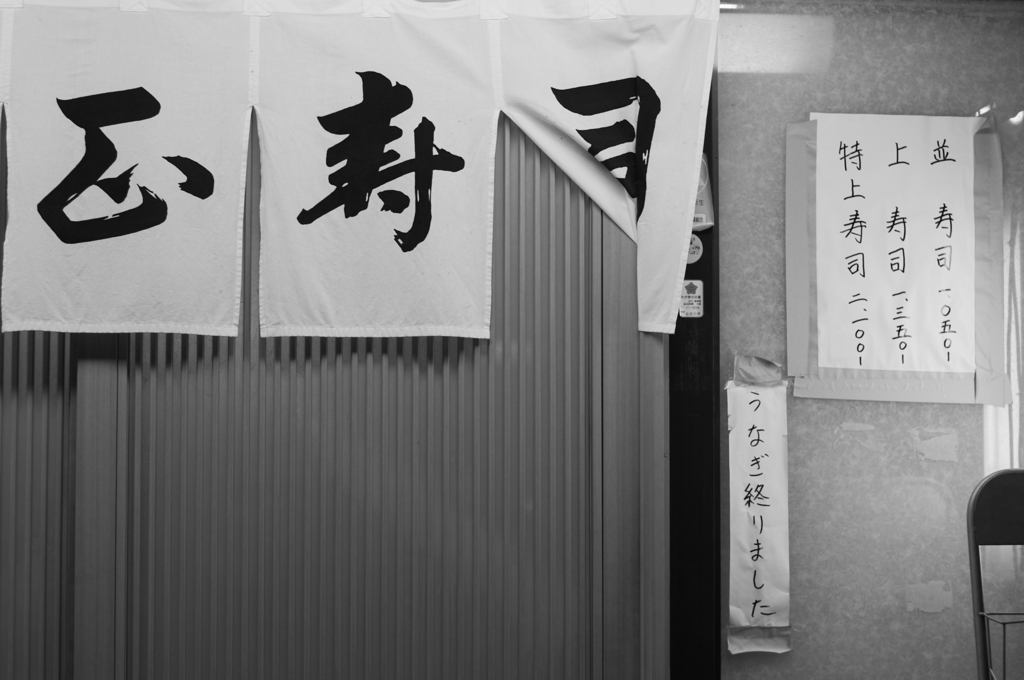 玉寿司
並 寿司 一、〇五〇ー
上 寿司 一、三五〇ー
特上寿司 二、一〇〇ー
うなぎ終りました